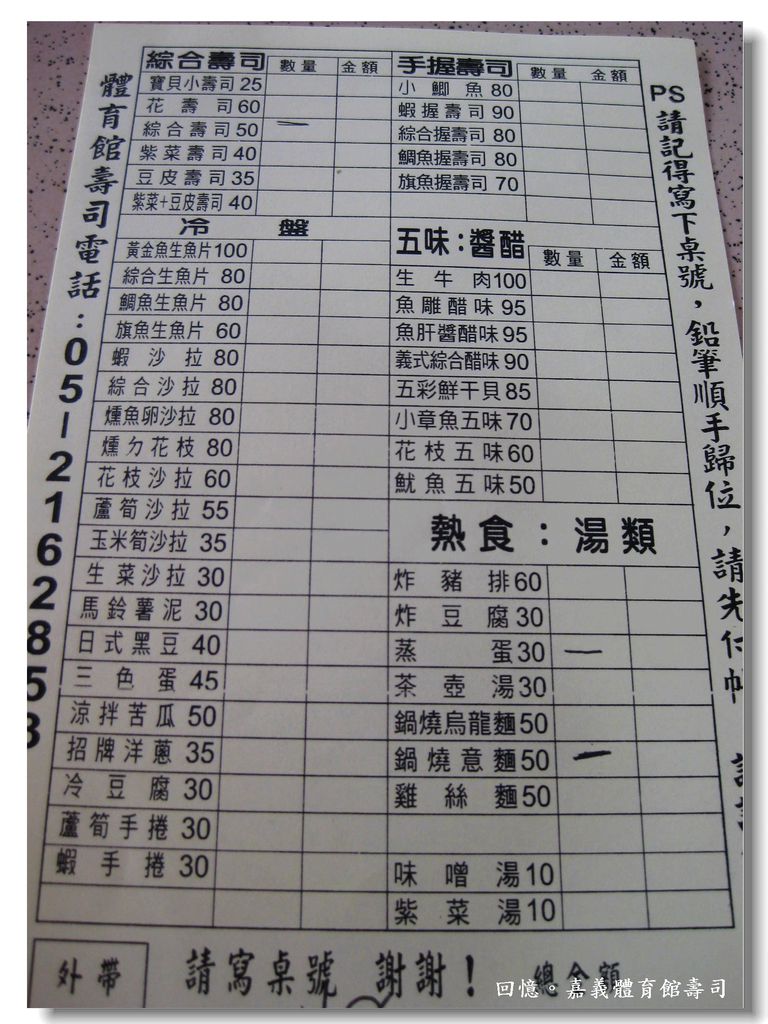 體育館壽司電話：05-2162858
綜合壽司 數量 金額
寶貝小壽司 25
花壽司 60
綜合壽司 50 一
紫菜壽司 40
豆皮壽司 35
紫菜+豆皮壽司 40
冷盤
黃金魚生魚片 100
綜合生魚片 80
鯛魚生魚片 80
旗魚生魚片 60
蝦沙拉 80
綜合沙拉 80
燻魚卵沙拉 80
燻ㄉ花枝 80
花枝沙拉 60
蘆筍沙拉 55
玉米筍沙拉 35
生菜沙拉 30
馬鈴薯泥 30
日式黑豆 40
三色蛋 45
涼拌苦瓜 50
招牌洋蔥 35
冷豆腐 30
蘆筍手捲 30
蝦手捲 30
手握壽司 數量 金額
小鯽魚 80
蝦握壽司 90
綜合握壽司 80
鯛魚握壽司 80
旗魚握壽司 70
五味：醬醋 數量 金額
生牛肉 100
魚雕醋味 95
魚肝醬醋味 95
義式綜合醋味 90
五彩鮮干貝 85
小章魚五味 70
花枝五味 60
魷魚五味 50
熱食：湯類
炸豬排 60
炸豆腐 30
蒸蛋 30 一
茶壺湯 30
鍋燒烏龍麵 50
鍋燒意麵 50 一
雞絲麵 50
味噌湯 10
紫菜湯 10
PS 請記得寫下桌號，鉛筆順手歸位，請先付帳
外帶 請寫桌號 謝謝！ 總金額
回憶。嘉義體育館壽司